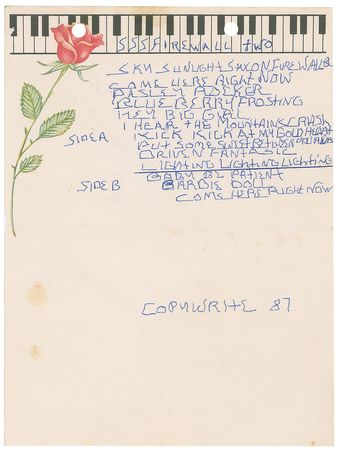 SSSFIREWALL TWO
SKY SUNLIGHT SAXON FIREWALL
COME HERE RIGHT NOW
PAISLEY ROCKER
BLUEBERRY FROSTING
HEY BIG GIRL
I HEAR THE MOUNTAINS CRASH
SIDE A KICK KICK AT MY GOLD HEART
PUT SOME SWEET BETWEEN
DRIVEN FANTASIC
LIGHTING LIGHTING LIGHTING
BABY BE PATIENT
SIDE B BARBIE DOLL
COME HERE RIGHT NOW
COPYWRITE 87